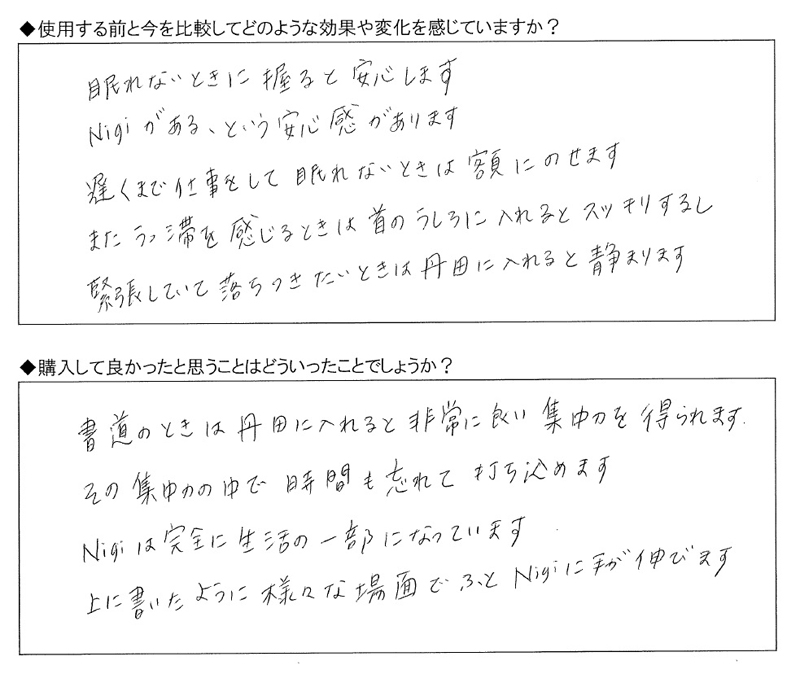 ◆使用する前と今を比較してどのような効果や変化を感じていますか？
眠れないときに握ると安心します
Nigiがある、という安心感があります
遅くまで仕事をして眠れないときは額にのせます
またうっ滞を感じるときは首のうしろに入れるとスッキリするし
緊張していて落ちつきたいときは丹田に入れると静まります
◆購入して良かったと思うことはどういったことでしょうか？
書道のときは丹田に入れると非常に良い集中力を得られます.
その集中力の中で時間も忘れて打ち込めます
Nigiは完全に生活の一部になっています
上に書いたように様々な場面でふとNigiに手が伸びます